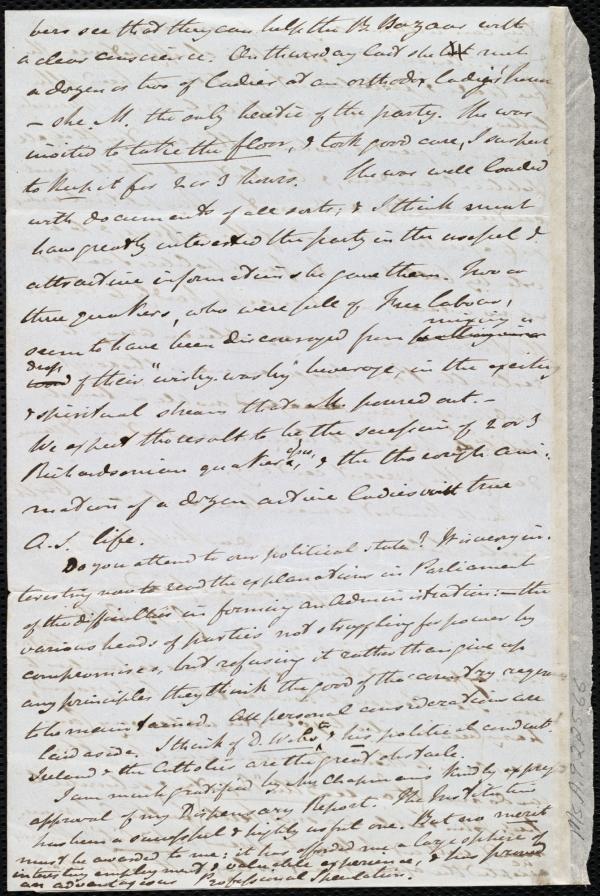 bers see that they can help the B. Bazaar with
a clear conscience. On thursday last she met
a dozen or two of Ladies at an orthodox Ladies' house
- she, M. the only heretic of the party. She was
invited to take the floor, & took good care, I suspect
to keep it for 2 or 3 hours. She was well loaded
with documents of all sorts, & I think must
have greatly interested the party in the useful &
attractive information she gave them. Two or
three quakers, who were full of Free labour,
seem to have been discouraged from mixing a
drop of their "wishy-washy" beverage, in the exciting
& spiritual stream that M. poured out -
We expect the result to be the secession of 2 or 3
Richardsonian quakeresses, & the thorough ani-
mation of a dozen active Ladies with true
A.S. life.
Do you attend to our political state? It is very in-
teresting now to read the explanations in Parliament
of the difficulties in forming an Administration: - the
various heads of parties not struggling for power by
compromises, but refusing it rather than give up
any principles they think the good of the country requires
to be maintained. All personal considerations are
laid aside. I think of D. Webster & his political conduct.
Ireland & the Catholics are the great obstacle.
I am much gratified by Mrs Chapman's kindly express
approval of my Dispensary Report. The Institution
has been a successful & highly useful one. But no merit
must be awarded to me: it has afforded me a large sphere of
interesting employment & valuable experience, & has proved
an advantageous Professional speculation.
Ms.A.9.2.25.66